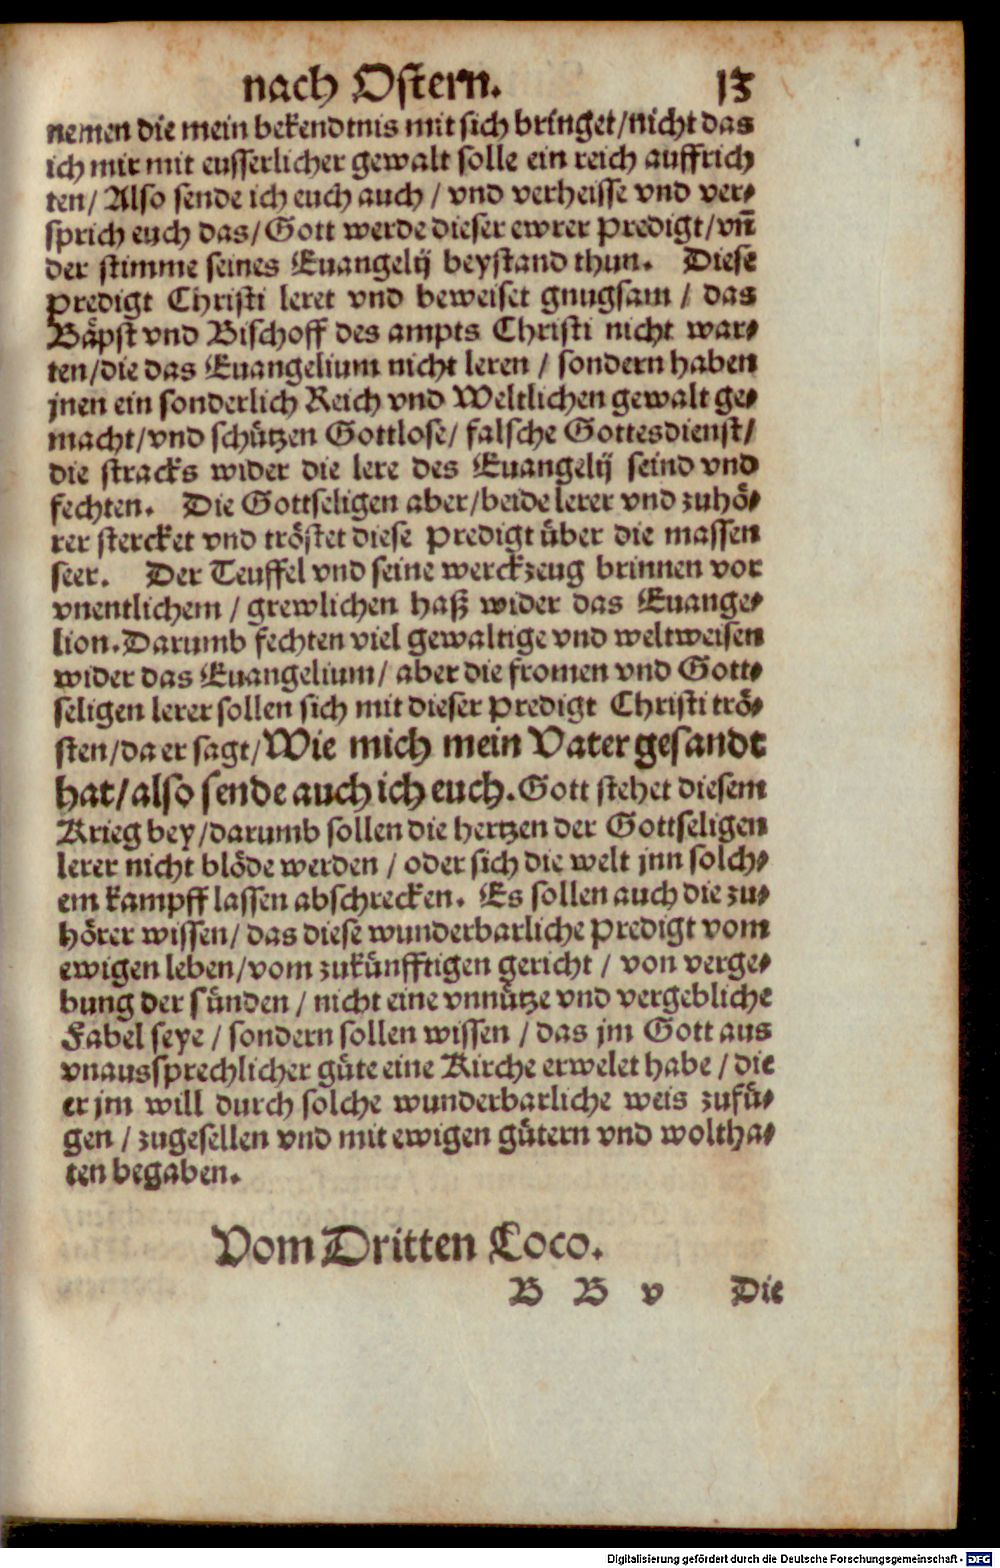 nach Ostern. 13
nemen die mein bekendtnis mit sich bringet/nicht das
ich mir mit eusserlicher gewalt solle ein reich auffrich
ten/ Also sende ich euch auch / vnd verheisse vnd ver⸗
sprich euch das/Gott werde dieser ewrer predigt/vn̄
der stimme seines Euangelij beystand thun. Diese
predigt Christi leret vnd beweiset gnugsam / das
Bäpst vnd Bischoff des ampts Christi nicht war⸗
ten/die das Euangelium nicht leren / sondern haben
jnen ein sonderlich Reich vnd Weltlichen gewalt ge⸗
macht/vnd schützen Gottlose/ falsche Gottesdienst/
die stracks wider die lere des Euangelij seind vnd
fechten. Die Gottseligen aber/beide lerer vnd zuhö⸗
rer stercket vnd tröstet diese predigt über die massen
seer. Der Teuffel vnd seine werckzeug brinnen vor
vnentlichem / grewlichen haß wider das Euange⸗
lion. Darumb fechten viel gewaltige vnd weltweisen
wider das Euangelium/ aber die fromen vnd Gott⸗
seligen lerer sollen sich mit dieser predigt Christi trö⸗
sten/da er sagt/Wie mich mein Vater gesandt
hat/also sende auch ich euch. Gott stehet diesem
Krieg bey/darumb sollen die hertzen der Gottseligen
lerer nicht blöde werden / oder sich die welt jnn solch⸗
em kampff lassen abschrecken. Es sollen auch die zu⸗
hörer wissen/ das diese wunderbarliche predigt vom
ewigen leben/vom zukünfftigen gericht / von verge⸗
bung der sünden / nicht eine vnnütze vnd vergebliche
Fabel seye / sondern sollen wissen / das jm Gott aus
vnaussprechlicher güte eine Kirche erwelet habe / die
er jm will durch solche wunderbarliche weis zufü⸗
gen / zugesellen vnd mit ewigen gütern vnd woltha⸗
ten begaben.
Vom Dritten Loco.
B B v Die
Digitalisierung gefördert durch die Deutsche Forschungsgemeinschaft - DFG